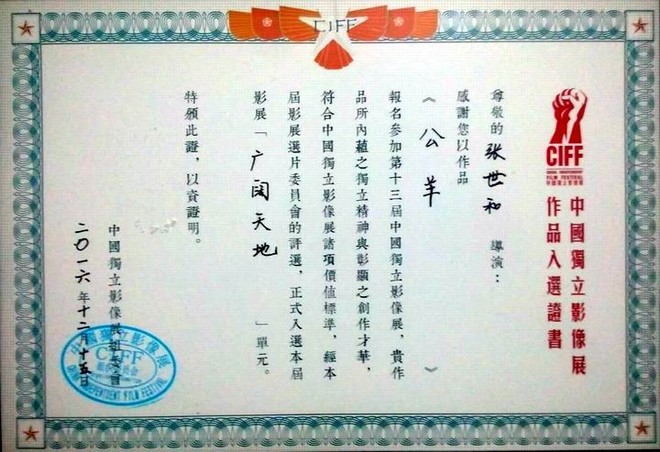 CIFF
CIFF
CHINA INDEPENDENT
FILM FESTIVAL
中國獨立影像展
中國獨立影像展
作品入選證書
尊敬的 张世和 導演：
感謝您以作品
《 公羊 》
報名參加第十三屆中國獨立影像展，貴作
品所內蘊之獨立精神與彰顯之創作才華，
符合中國獨立影像展諸項價值標準，經本
屆影展選片委員會的評選，正式入選本屆
影展「 广阔天地 」單元。
特頒此證，以資證明。
中國獨立影像展組委會
二〇一六年十二月十五日
中國獨立影像展
CIFF
INDEPENDENT FILM FESTIVAL